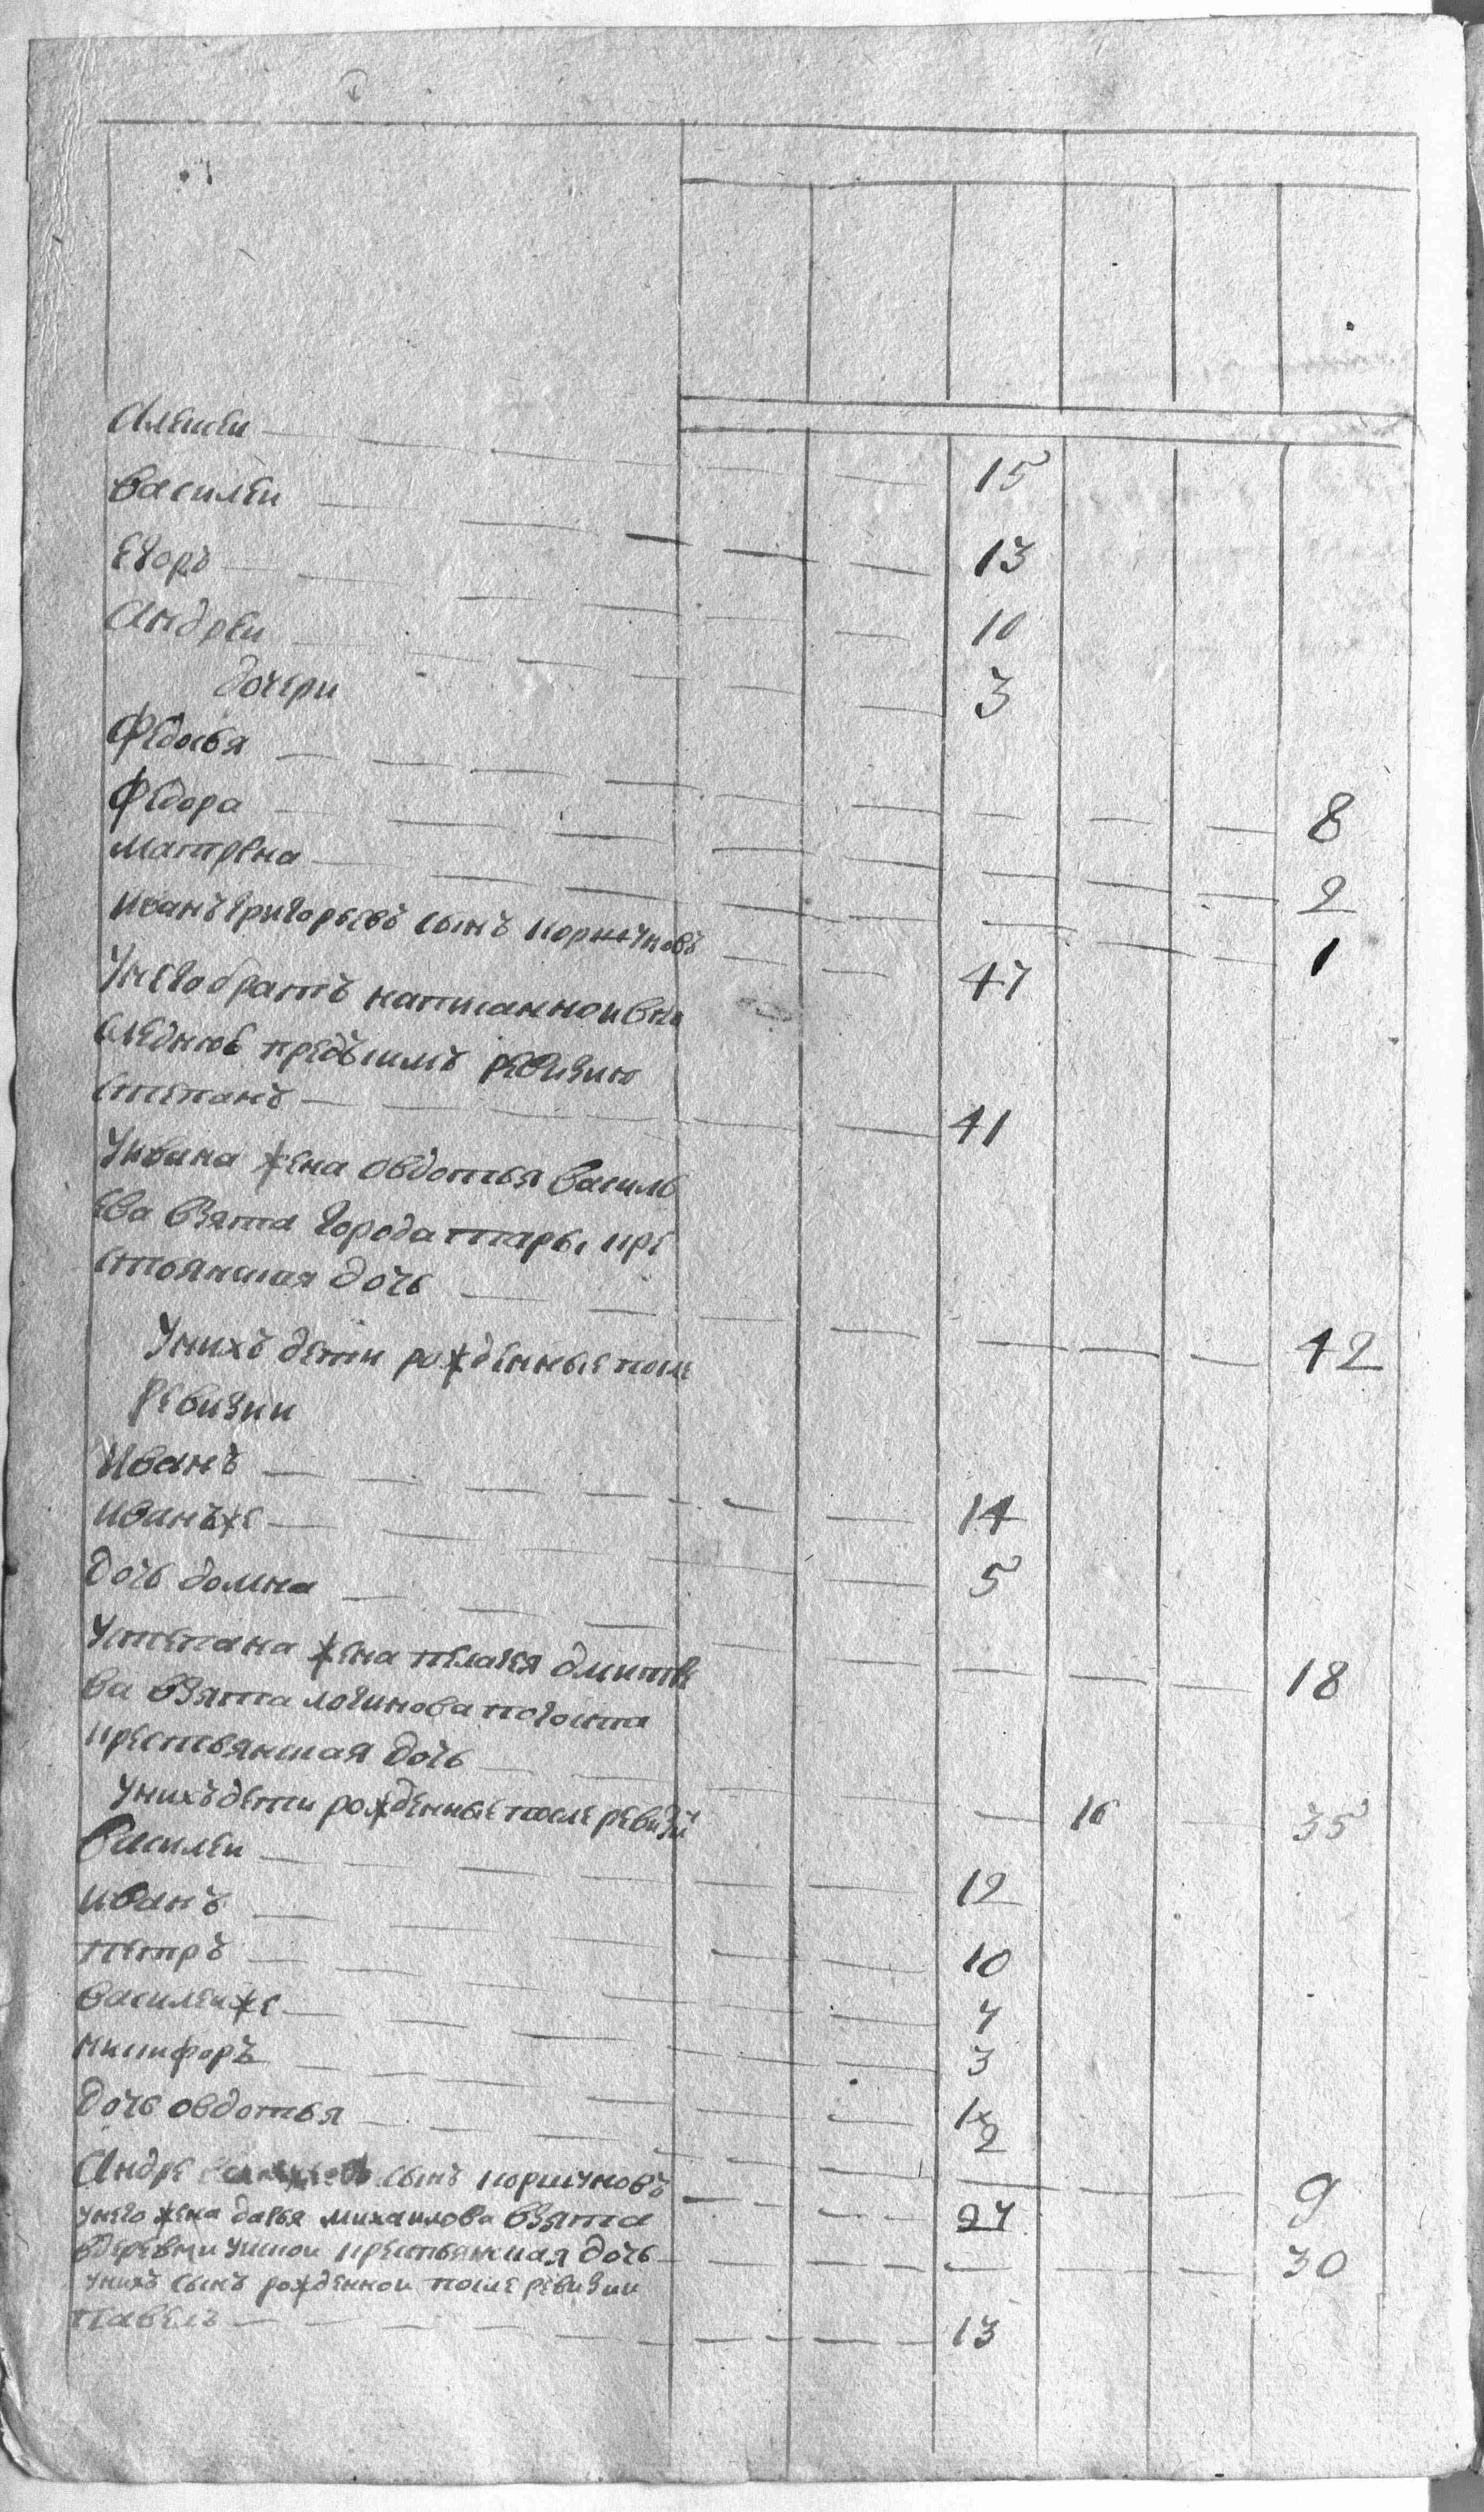 Алеѯеи 15
Василеи 13
Егоръ 10
Андреи 3
дочери
Федосья 8
Федора 2
Матрена 1
Иванъ Григорьевъ сынъ Коршуновъ 47
У него братъ написанной в по
следнюю предъ симъ ревизию
Степанъ 41
У Ивана жена Овдотья Василь
ева взята города Тары кре
стьянская дочь 42
У нихъ дети рожденные после
ревизии
Иванъ 14
Иванъ же 5
Дочь Домна 18
У Степана жена Пелагея Дмитре
ва взята Логинова погоста
крестьянская дочь 16 35
У нихъ дети рожденные после ревизи
Василеи 12
Иванъ 10
Петръ 4
Василеи же 3
Никифоръ 2
Дочь Овдотья 9
Андре сынъ Коршуновъ
У него жена Дарья Михаилова взята
в деревни крестьянская дочь 30
У нихъ сынъ рожденной после ревизии
Павелъ 13